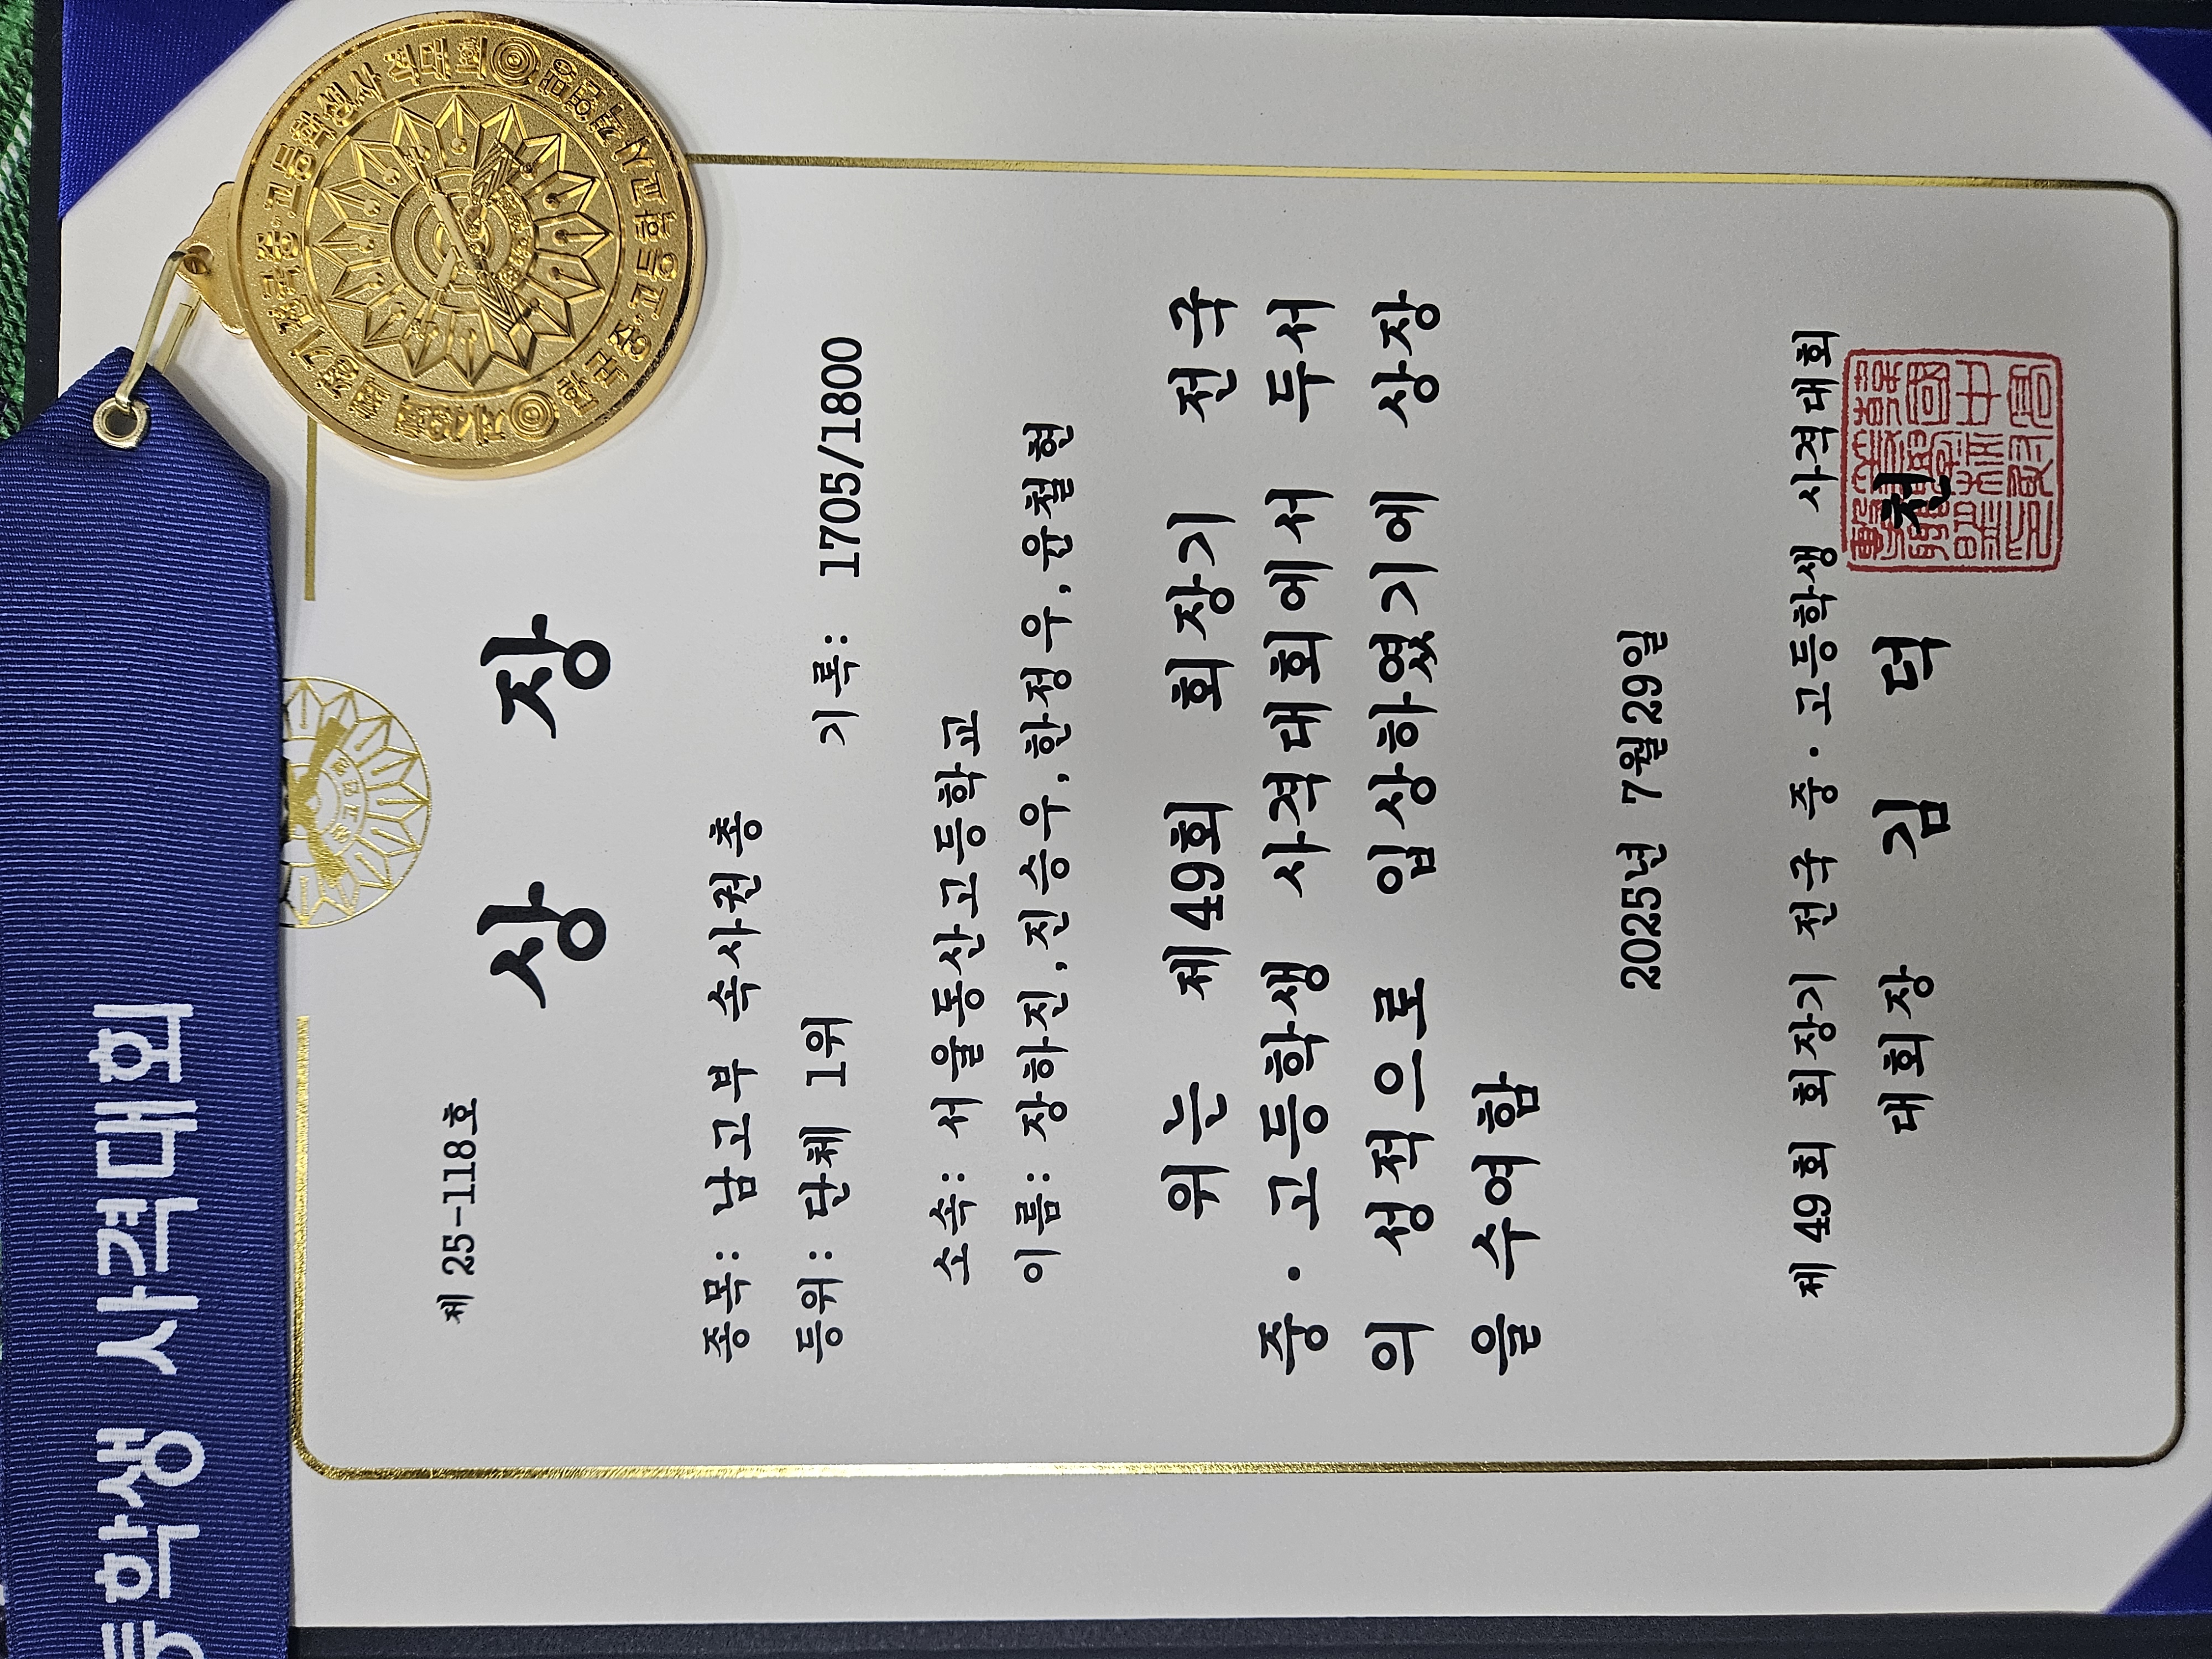 제 25-118호
상 장
종목: 남고부 속사권총
등위: 단체 1위
기록: 1705/1800
소속: 서울동산고등학교
이름: 장하진,진승우,한정우,윤철현
위는 제49회 회장기 전국
중·고등학생 사격대회에서 두서
의 성적으로 입상하였기에 상장
을 수여함
2025년 7월29일
제 49회 회장기 전국 중·고등학생 사격대회
대회장 김 덕 천
등학생 사격대회
제49회 회장기전국중·고등학생사격대회
한국중·고등학교